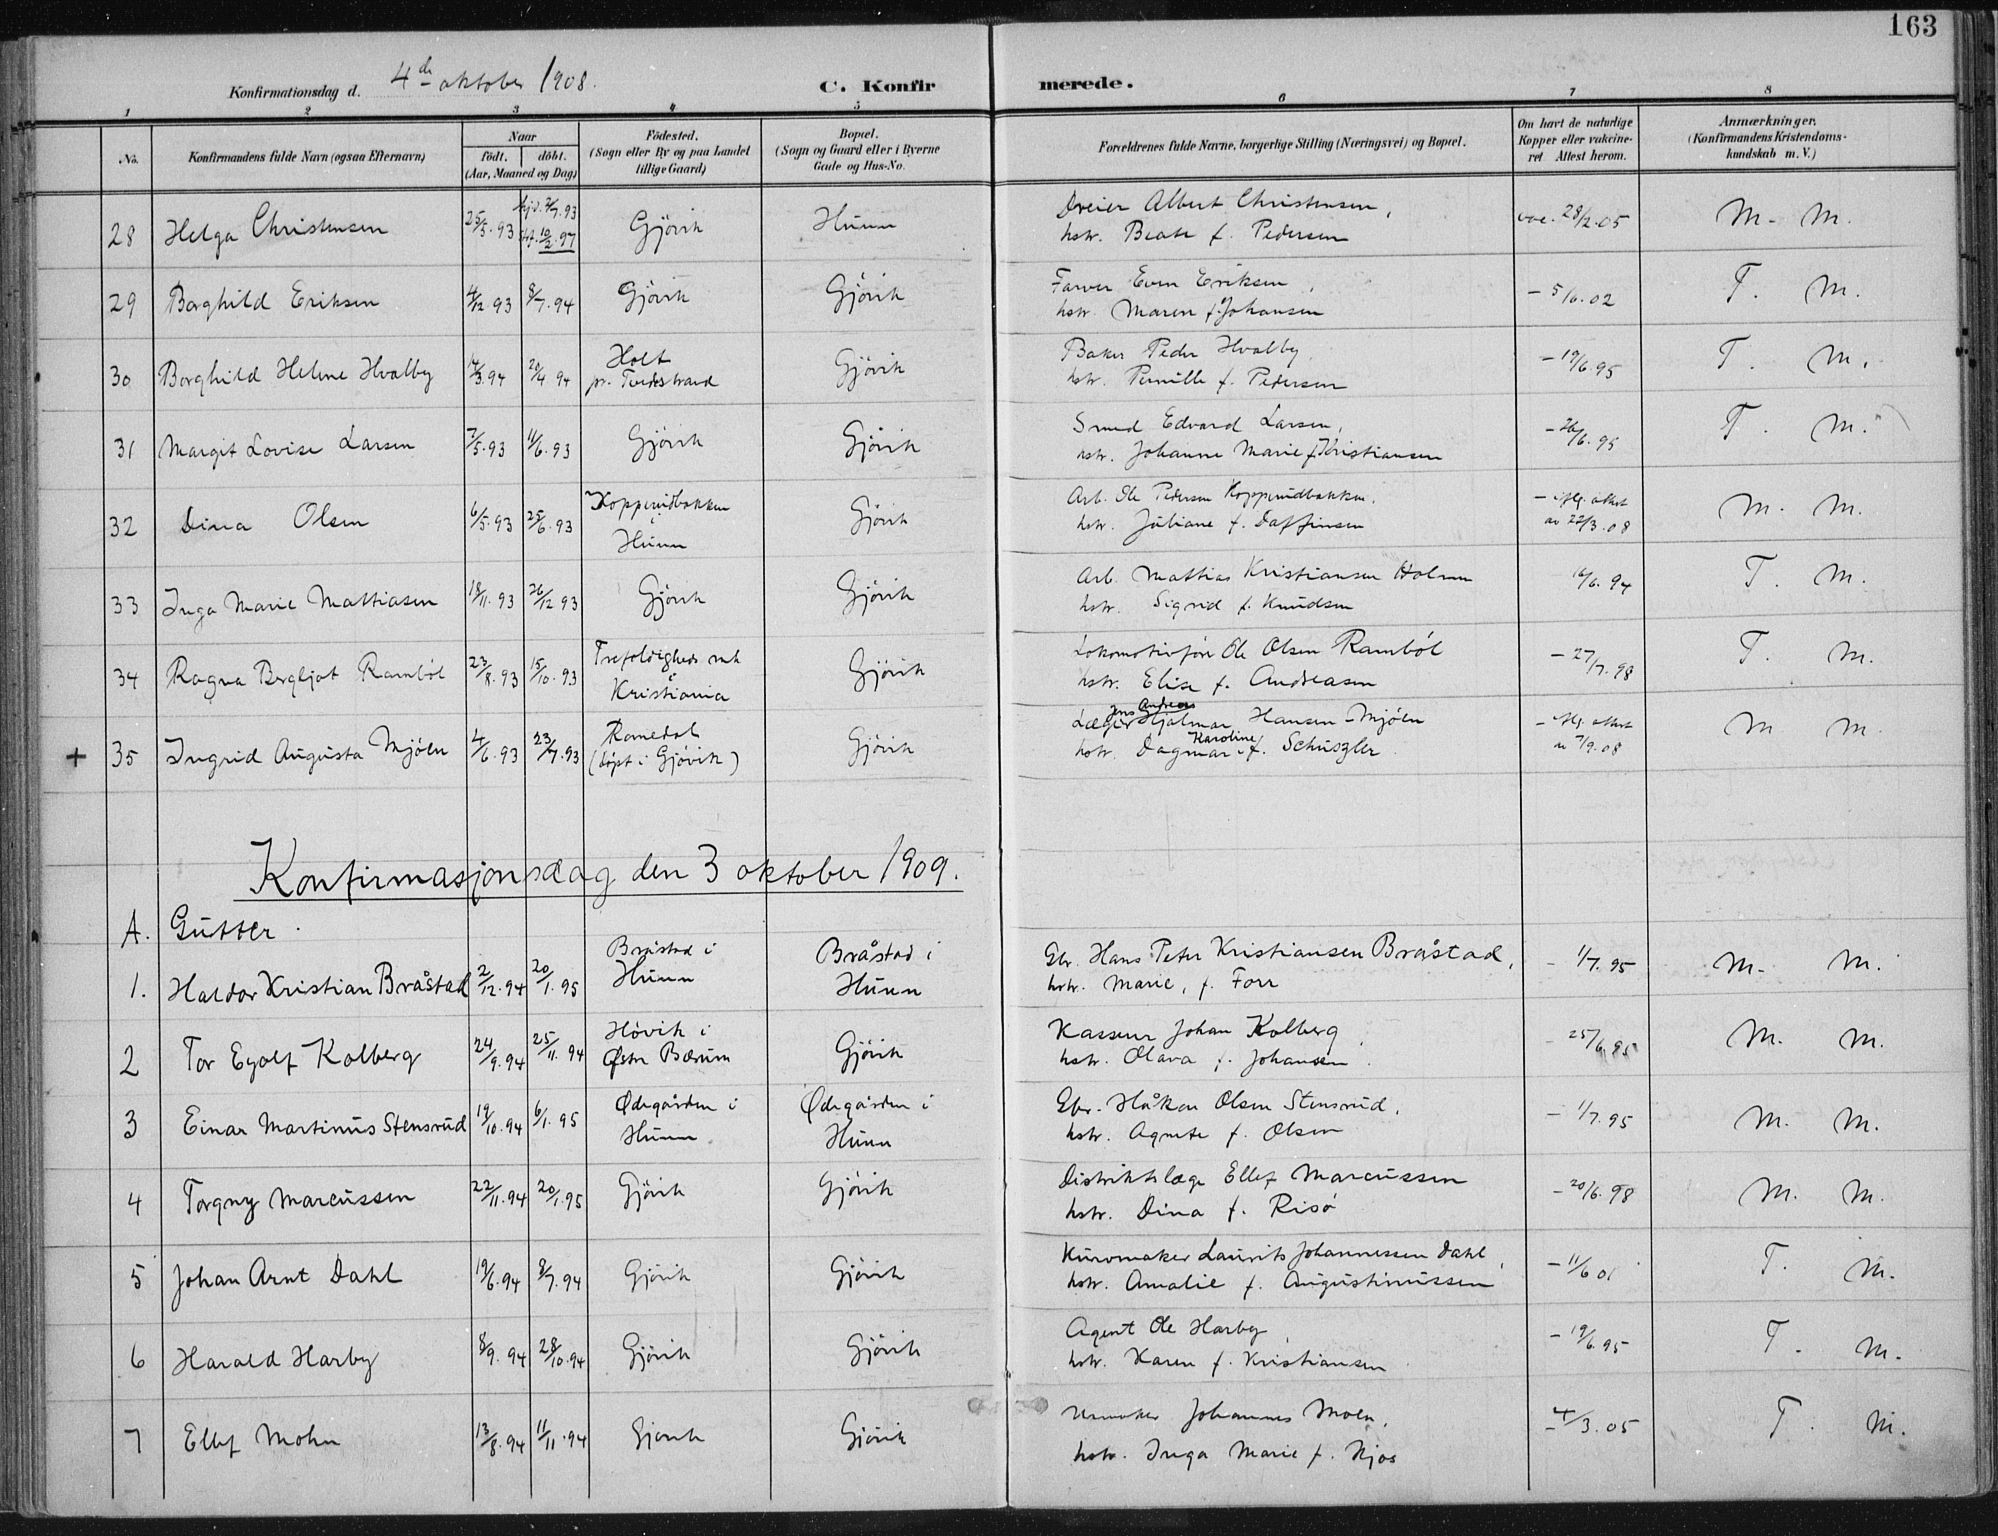 163
Konfirmationsdag d. 4de oktober 1908.
C. Konfirmerede.
1 2 3 4 5 6 7 8
No.
Konfirmandens fulde Navn (ogsaa Efternavn)
Naar
födt. döbt.
(Aar, Maaned og Dag)
Födested.
(Sogn eller By og paa Landet
tillige Gaard)
Bopæl.
(Sogn og Gaard eller i Byerne
Gade og Hus-No.
Forældrenes fulde Navne, borgerlige Stilling (Næringsvei) og Bopæl.
Om havt de naturlige
Kopper eller vakcine-
ret Attest herom.
Anmærkninger.
(Konfirmandens Kristendoms-
kundskab m. V.)
28 Helga Christensen 25/3.93 hjd. 2/7.93 Gjövik Huun Dreier Albert Christensen, vac. 28/2.05 M. M.
stf. 10/2.97 hstr. Beate f. Pedersen
29 Borghild Eriksen 4/12 93 8/7.94 Gjövik Gjövik Farver Even Eriksen, - 5/6.02 T. M.
hstr. Maren f. Johansen
30 Borghild Helene Hvalby 14/3.94 20/4 94 Holt Gjövik Baker Peder Hvalby, - 19/6.95 T. M.
pr. Tvedestrand hstr. Pernille f. Pedersen
31 Margit Lovise Larsen 7/5.93 11/6.93 Gjövik Gjövik Smed Edvard Larsen, - 26/6.95 T. M.
hstr. Johanne Marie f. Kristiansen
32 Dina Olsen 6/5.93 25/6.93 Kopperudbakken Gjövik Arb. Ole Pedersen Kopperudbakken, - iflg. attest M. M.
i Huun hstr. Juliane f. Daffinsen av 22/3.08
33 Inga Marie Mattiasen 18/11.93 26/12 93 Gjövik Gjövik Arb. Mattias Kristiansen Holmen 16/6.94 T. M.
hstr. Sigrid f. Knudsen
34 Ragna Bergljot Ramböl 23/8.93 15/10.93 Trefoldigheds mh Gjövik Lokomotivfører Ole Olsen Ramböl - 27/7.98 T. M.
i Kristiania hstr. Elise f. Andreasen
+ 35 Ingrid Augusta Mjöen 4/6.93 23/7.93 Romedal Gjövik Læge Jens Andreas Hjalmar Hansen-Mjöen - iflg. attest M M.
(döpt i Gjövik) hstr. Dagmar Karoline f. Schüszler. av 7/9.08
Konfirmasjonsdag den 3 oktober 1909.
A. Gutter.
1. Haldor Kristian Bråstad 2/12.94 20/1.95 Bråstad i Bråstad i Gbr. Hans Peter Kristiansen Bråstad, - 1/7.95 M. M.
Huun Huun hstr. Marie, f. Forr
2 Tor Eyolf Kolberg 24/9.94 25/11.94 Hövik i Gjövik Kasserer Johan Kolberg, - 25/6 95 M. M.
Østre Bærum hstr. Olava f. Johansen.
3 Einar Martinus Stensrud 19/10.94 6/1.95 Ødegården i Ødegården i Gbr. Håkon Olsen Stensrud, - 1/7.95 M. M.
Huun Huun hstr. Agnete f. Olsen
4 Torgny Marcussen 22/11.94 20/1.95 Gjövik Gjövik Distriktslæge Ellef Marcussen - 20/6.98 M. M.
hstr. Dina f. Risö
5 Johan Arnt Dahl 19/6.94 8/7.94 Gjövik Gjövik Kurvmaker Laurits Johannessen Dahl, - 11/6 01 T. M.
hstr. Amalie f. Augustinussen
6 Harald Harby 8/9.94 28/10.94 Gjövik Gjövik Agent Ole Harby, - 19/6.95 T. M.
hstr. Karen f. Kristiansen
7 Ellef Mohn 13/8.94 11/11.94 Gjövik Gjövik Urmaker Johannes Moen, - 4/3.05 T. M.
hstr. Inga Marie f. Kjos